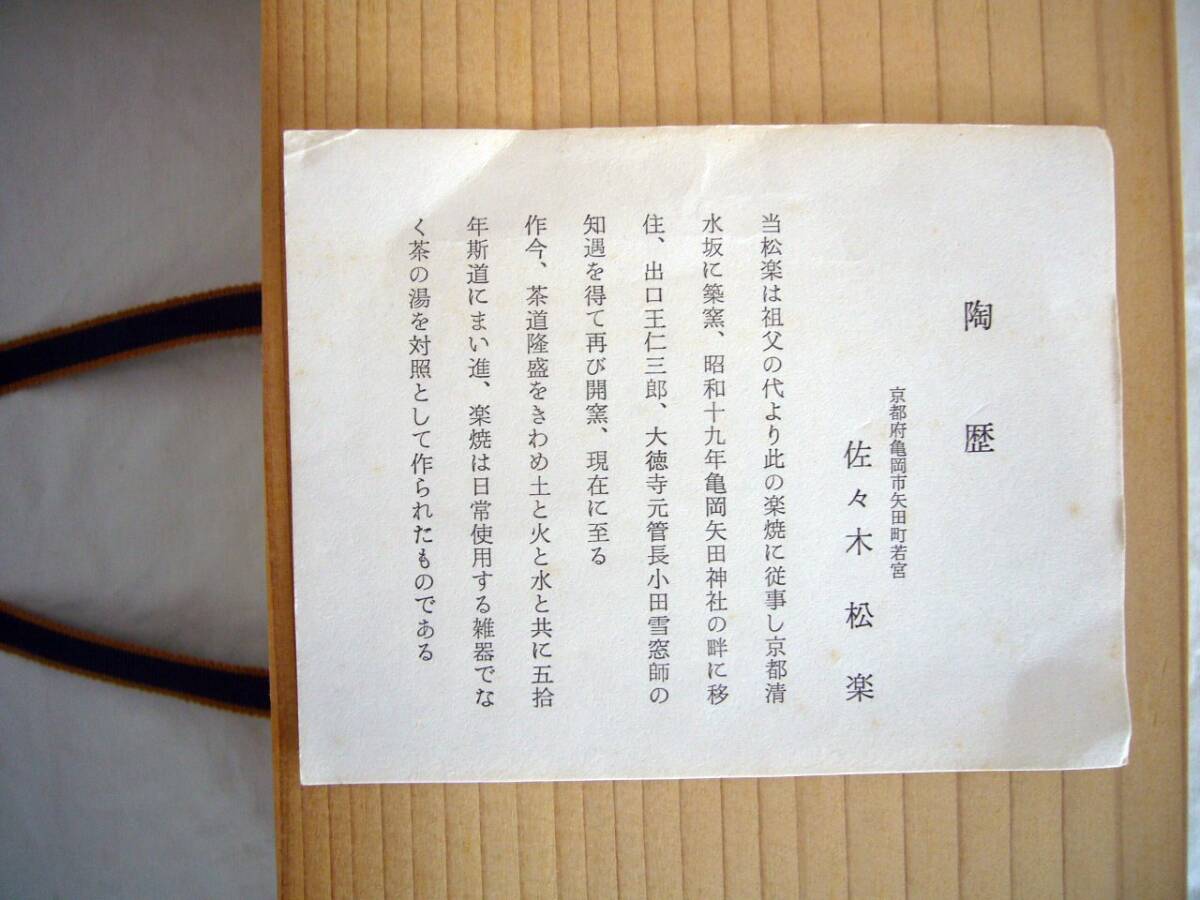 陶歴
京都府亀岡市矢田町若宮
佐々木松楽
当松楽は祖父の代より此の楽焼に従事し京都清
水坂に築窯、昭和十九年亀岡矢田神社の畔に移
住、出口王仁三郎、大徳寺元管長小田雪窓師の
知遇を得て再び開窯、現在に至る
作今、茶道隆盛をきわめ土と火と水と共に五拾
年斯道にまい進、楽焼は日常使用する雑器でな
く茶の湯を対照として作られたものである